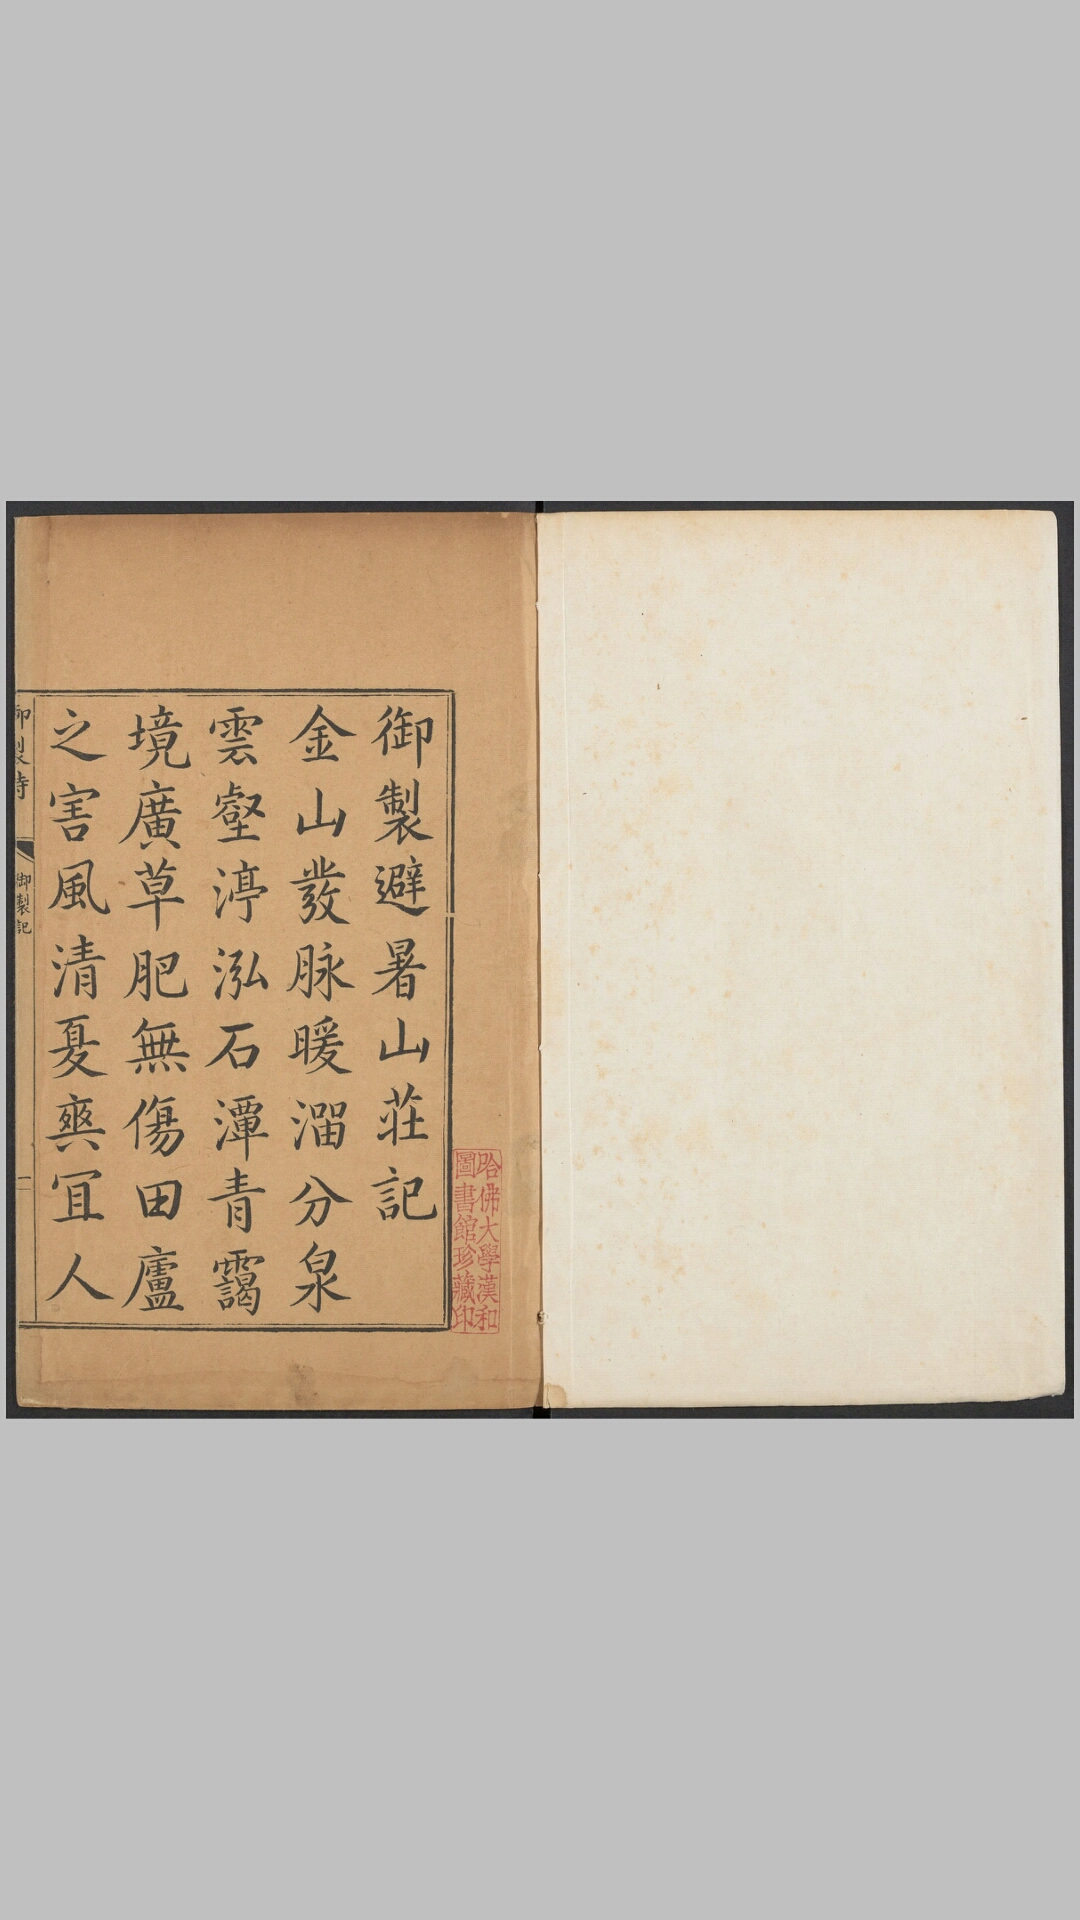 御製避暑山莊記
金山發脉暖溜分泉
雲壑渟泓石潭青靄
境廣草肥無傷田廬
之害風清夏爽宜人
御製詩
御製記
一
哈佛大學漢和
圖書館珍藏印